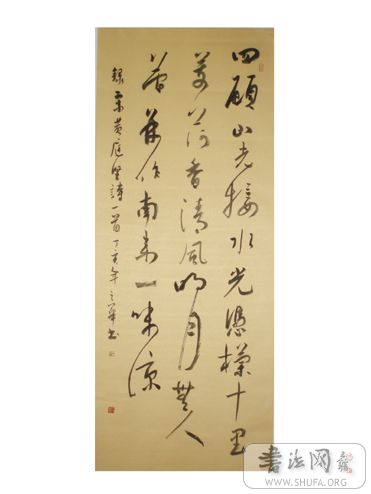 四顾山光接水光憑欄十里
芰荷香清風明月無人
管並作南来一味凉
錄宋黄庭堅詩一首丁亥年之華书
书法网
WWW.SHUFA.ORG